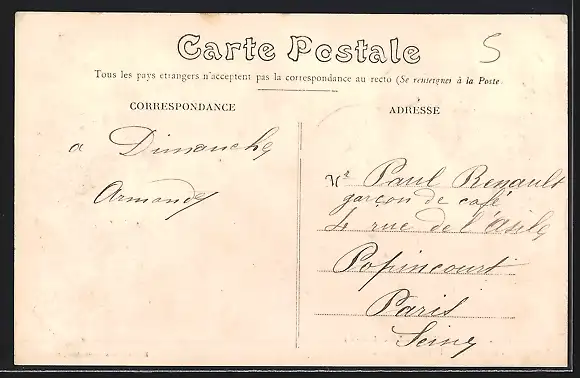 Carte Postale
5
Tous les pays etrangers n'acceptent pas la correspondance au recto (Se renseigner à la Poste.
CORRESPONDANCE
ADRESSE
a Dimanche
Armande
Mr Paul Renault
garçon de café
4 rue de l'asile
Popincourt
Paris
Seine